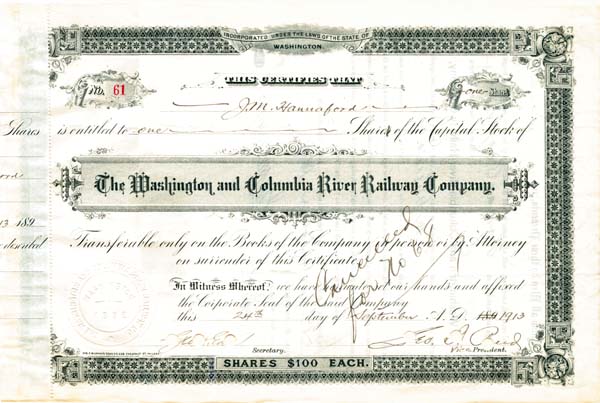 INCORPORATED UNDER THE LAWS OF THE STATE OF
WASHINGTON.
THIS CERTIFIES THAT
No. 61
one Share
J.M. Hannaford
Shares
is entitled to one Shares of the Capital Stock of
The Washington and Columbia River Railway Company.
13 189
Transferable only on the Books of the Company in person or by Attorney
on surrender of this Certificate.
Cancelled
for No 68
In Witness Whereof, we have hereunto set our hands and affixed
the Corporate Seal of the said Company
this 24th day of September A.D. 1913
Geo. Reid
Secretary.
Vice President.
SHARES $100 EACH.